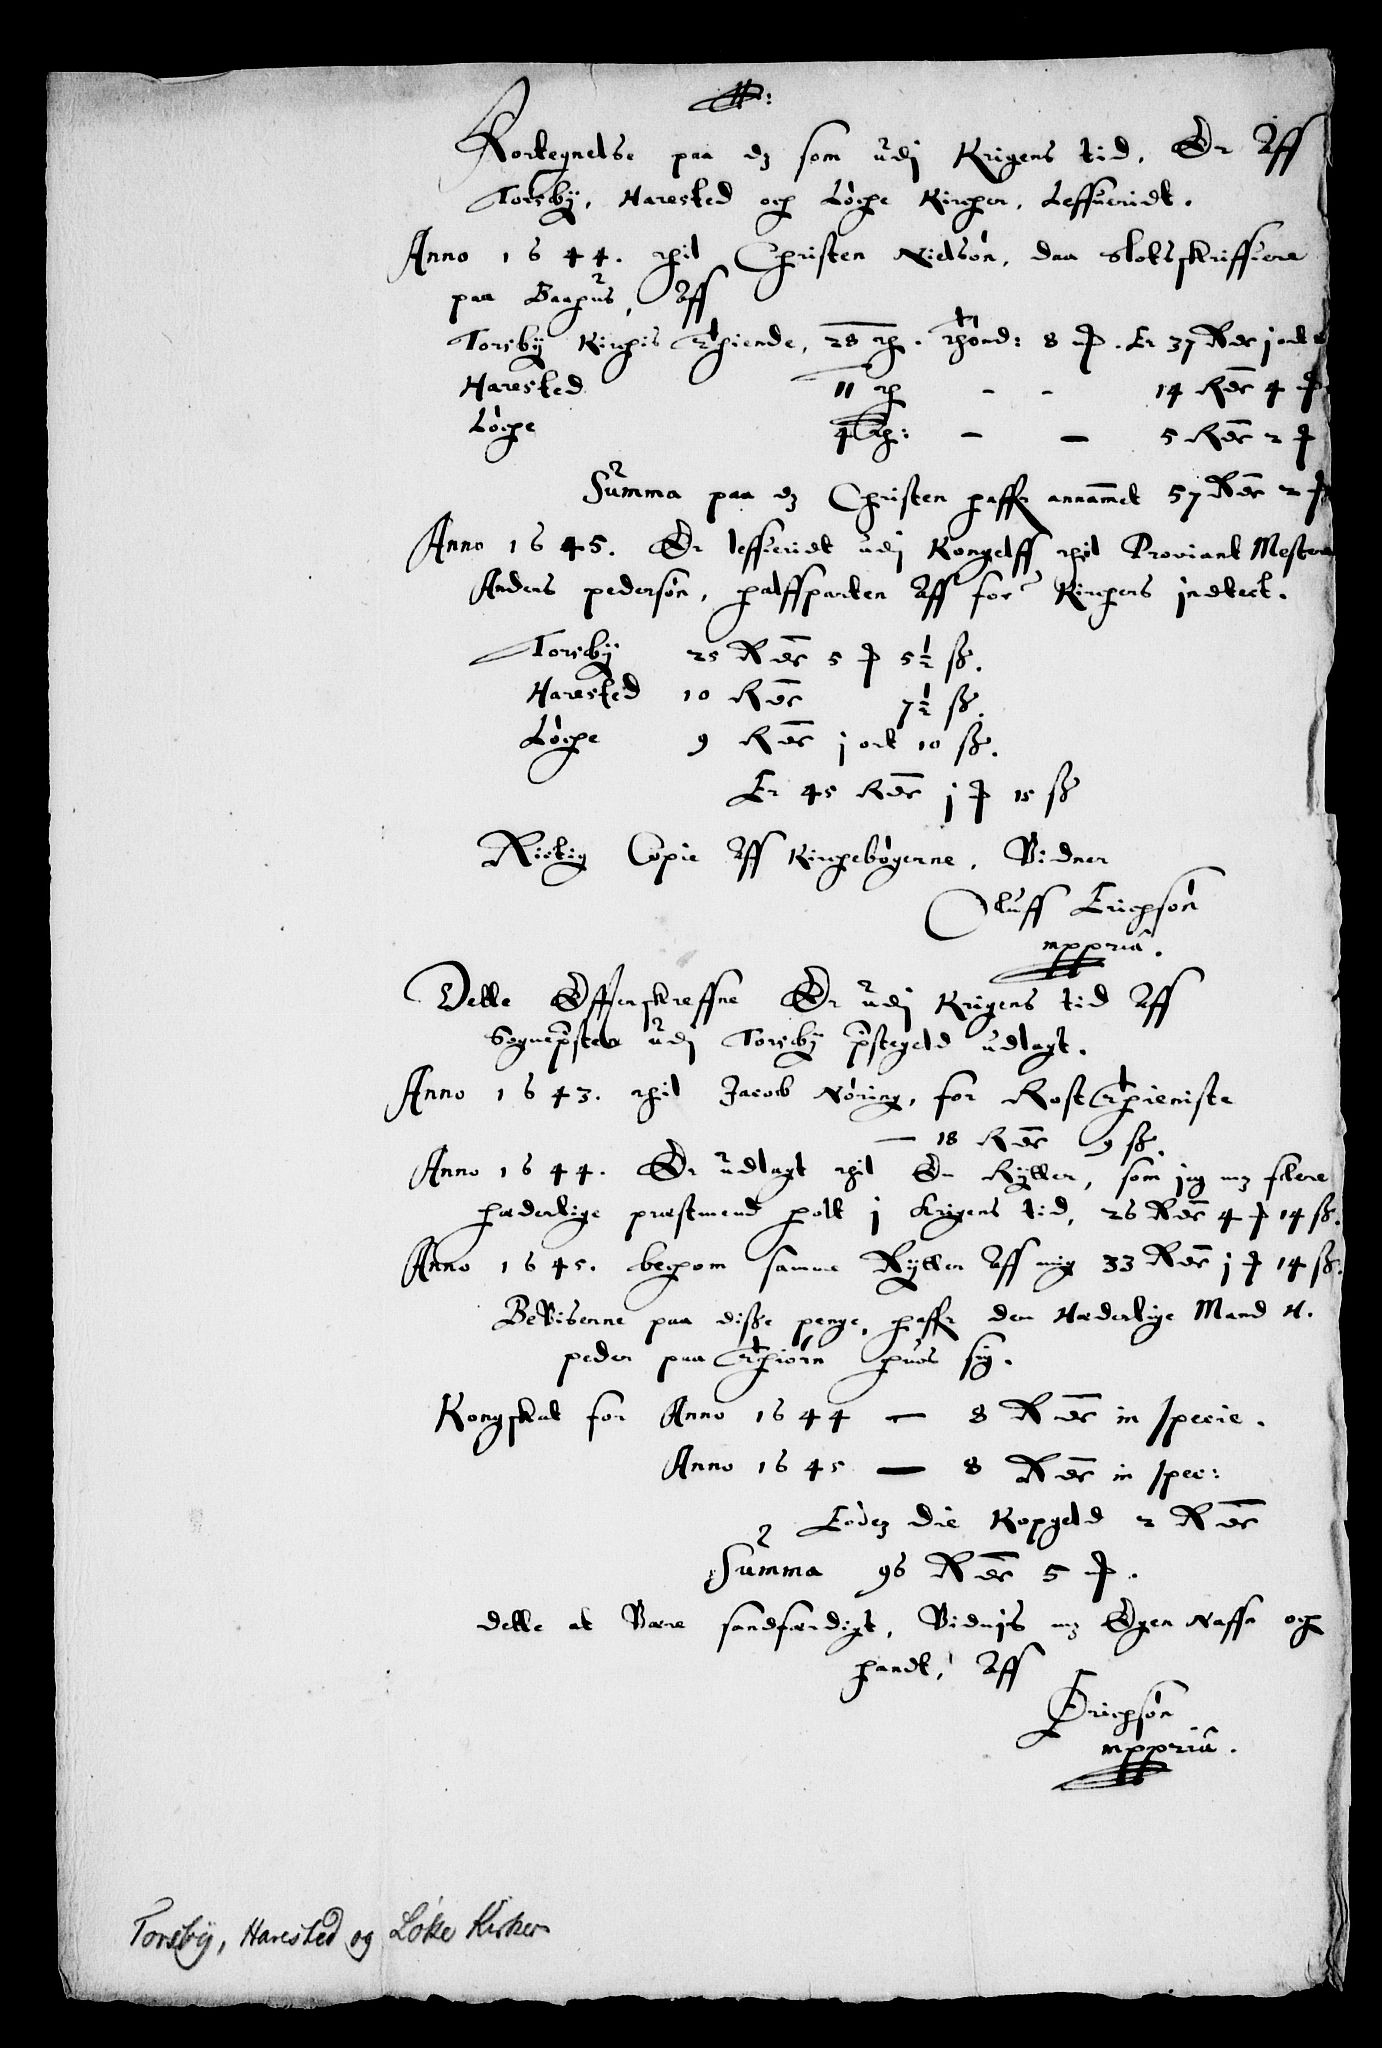 Fortegnelse paa dz som udj Krigens tid, Er Aff
Torsby, Harested og Løche Kircher, Leffueridt.
Anno 1644. thil Christen Nielsøn, daa Slotsskriffuere
paa Baahus, Aff
Torsby Kirchis thiende, 28 th. thønd: 8 ₰. Er 37 Rdr j ort
Harested 11 th - - 14 Rdr 4 ₰
Løche 4 th: - - 5 Rdr 2 ₰
Summa paa dz Christen haffr annammet 57 Rdr 2 ₰
Anno 1645. Er leffueridt udj Kongelff thil Proviant Mester
Anders pedersøn, halffparten Aff for: Kirchers jndtect.
Torsby 25 Rdr 5 ₰ 5½ sß.
Harested 10 Rdr 7½ sß.
Løche 9 Rdr j ort 10 sß.
Er 45 Rdr j ₰ 15 sß
Rictig Copie Aff Kirchebøgerne, Vidner
Oluff Erichsøn
mppria.
Dette Effterskreffne Er udj Krigens tid Aff
Sognepsten udj Torsby pstegeld udlagt.
Anno 1643. thil Jacob Nøring, for Rostthieniste
— 18 Rdr 9 sß.
Anno 1644. Er udlagt thil En Rytter, som jeg mz flere
hæderlige præstmend holt j Krigens tid, 26 Rdr 4 ₰ 14 sß.
Anno 1645. bechom samme Rytter Aff mig 33 Rdr j ₰ 14 sß.
BeViserne paa disse penge, haffr den Hæderlige Mand H.
peder paa Thiørn huos sig.
Kongskat for Anno 1644 — 8 Rdr in specie.
Anno 1645 — 8 Rdr in spec:
die Kopgeld 2 Rdr
Summa 96 Rdr 5 ₰.
dette at Være sandfærdigt, Vidnis mz Egen Naffn og
handt, Aff
Erichsøn
mppria.
Torsby, Harested og Løke Kirker